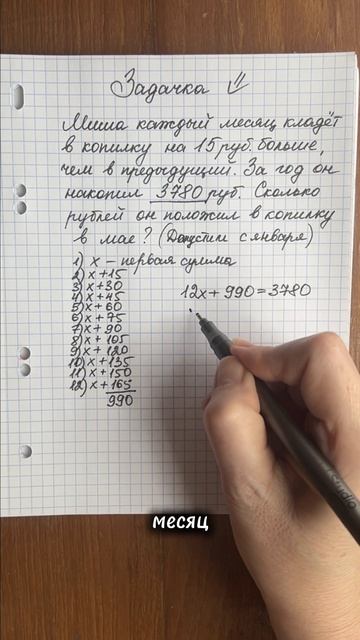 Задачка
Миша каждый месяц кладёт
в копилку на 15 руб. больше,
чем в предыдущий. За год он
накопил 3780 руб. Сколько
рублей он положил в копилку
в мае? (Допустим с января)
1) x – первая сумма
2) x+15
3) x+30
4) x+45
5) x+60
6) x+75
7) x+90
8) x+105
9) x+120
10) x+135
11) x+150
12) x+165
990
12x+990=3780
месяц